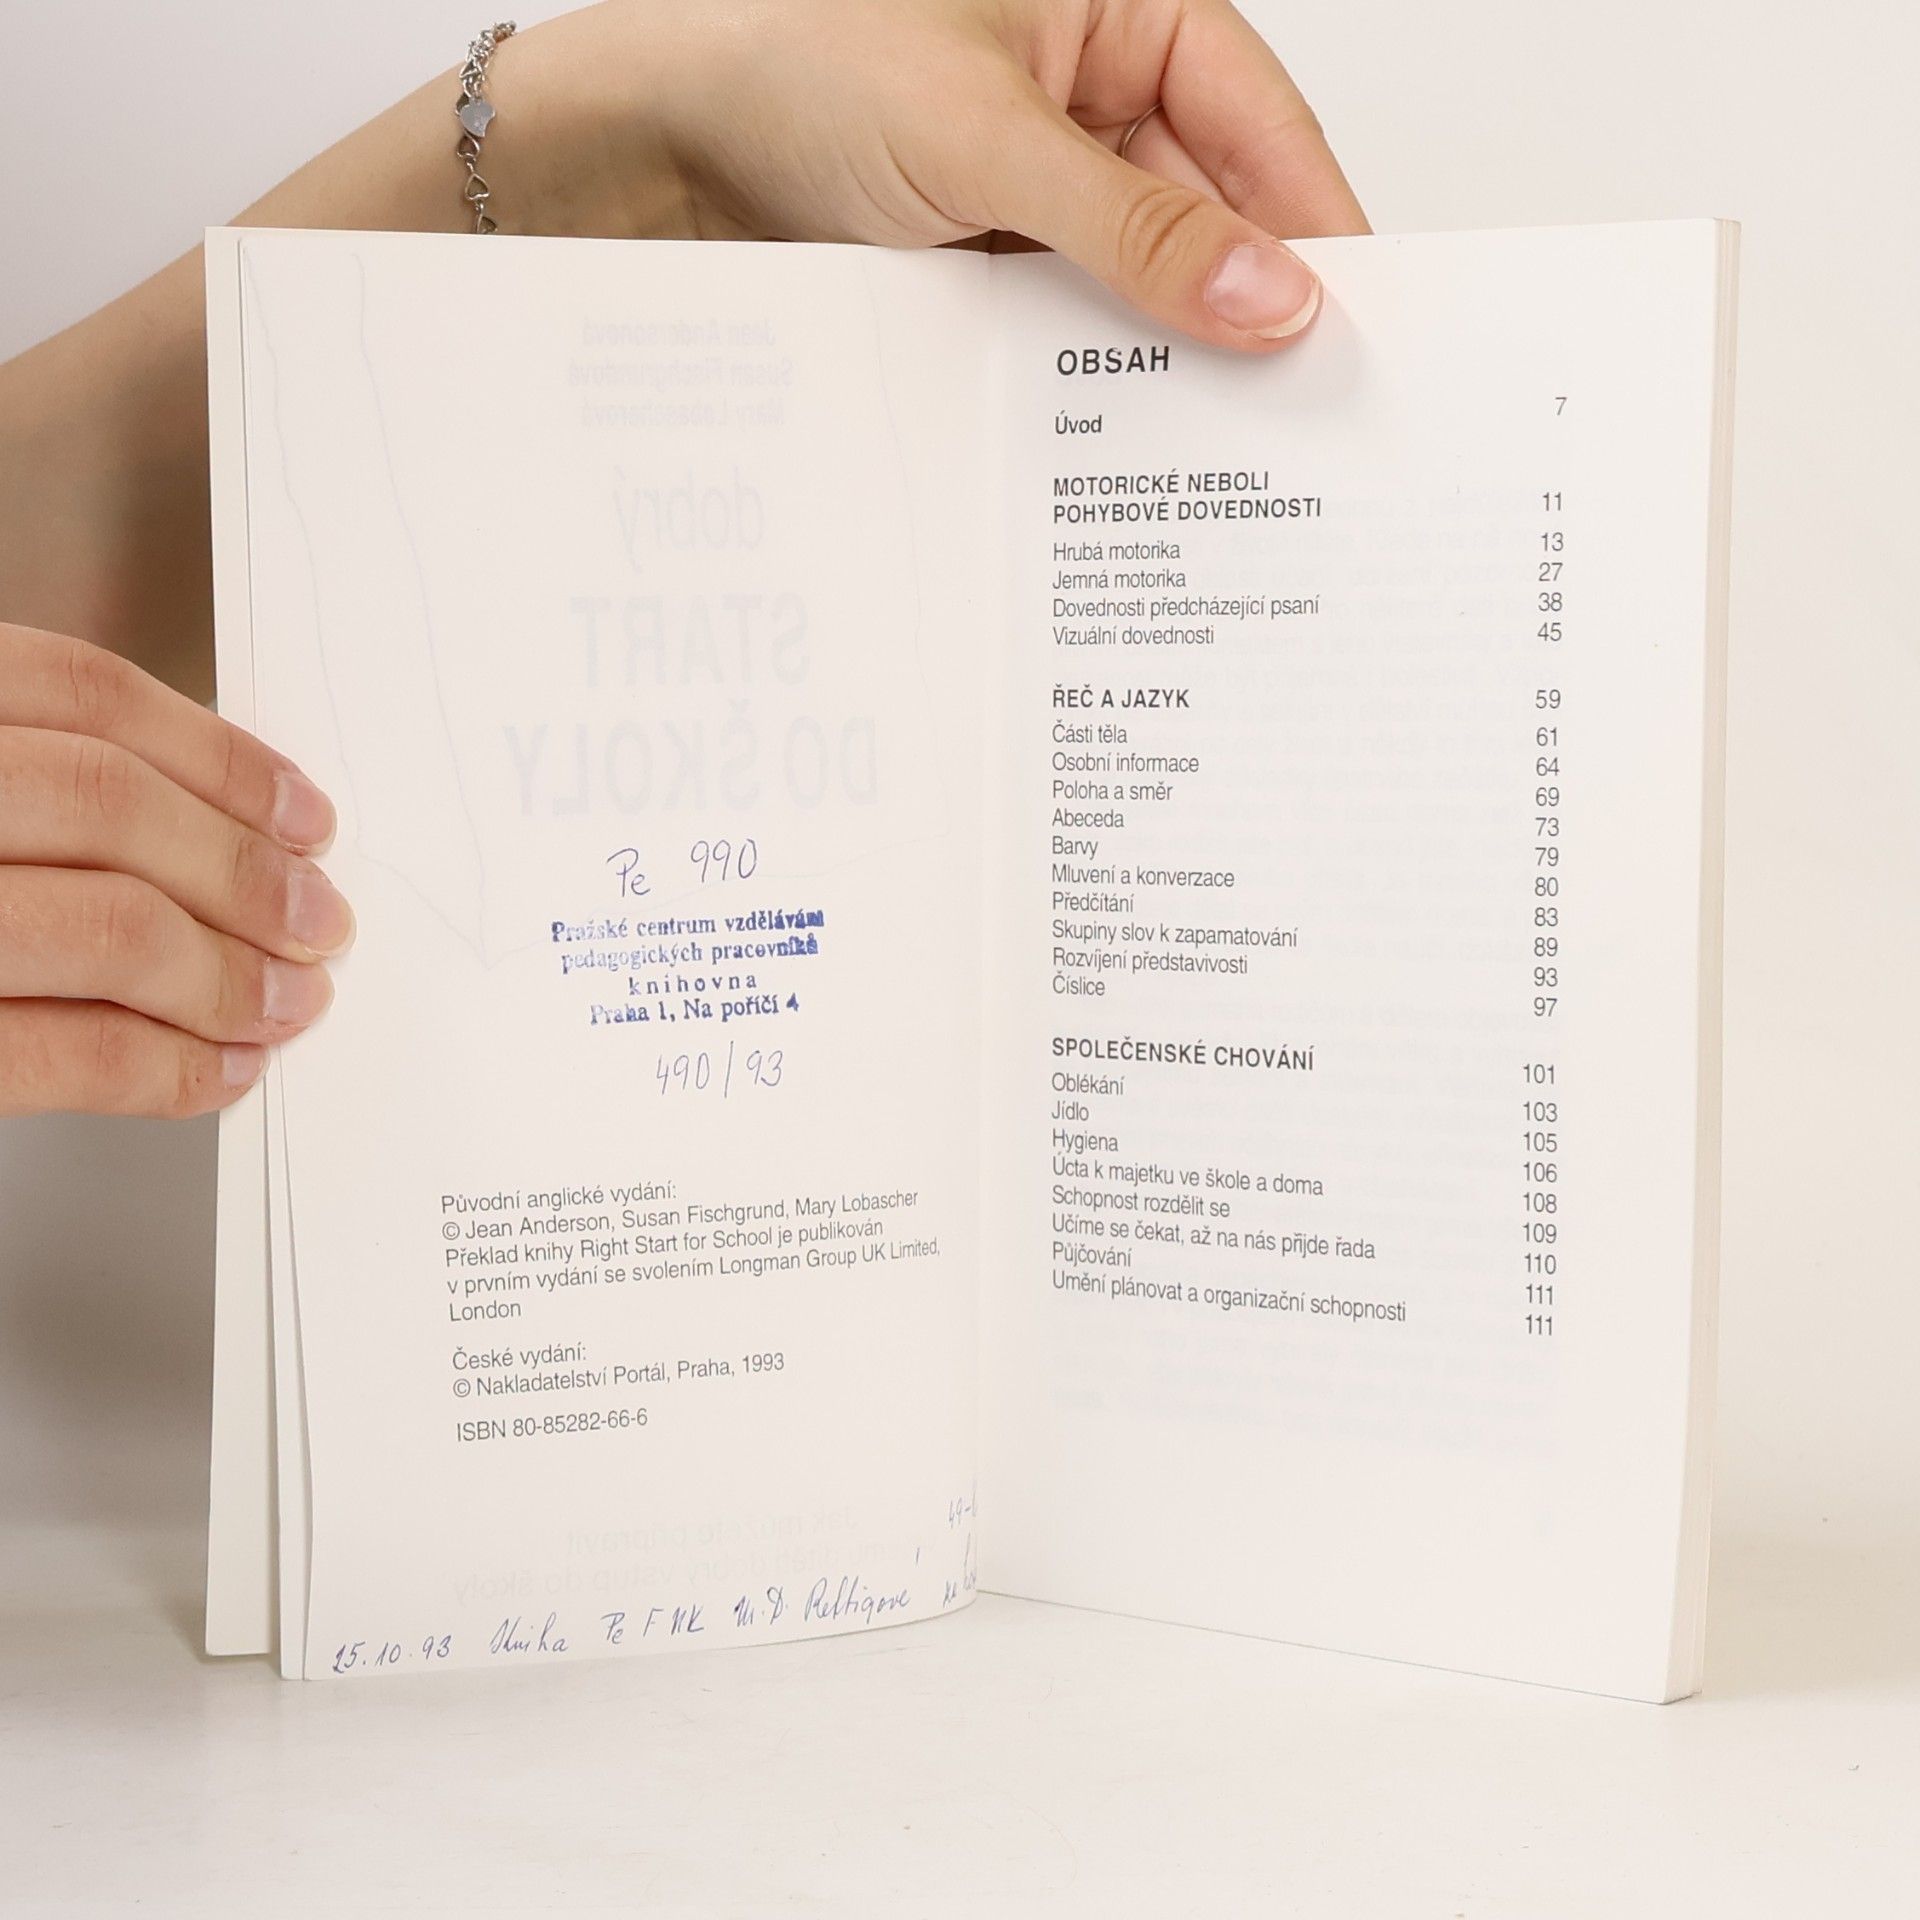 Pe 990
Pražské centrum vzdělávání
pedagogických pracovníků
knihovna
Praha 1, Na poříčí 4
490/93
Původní anglické vydání:
© Jean Anderson, Susan Fischgrund, Mary Lobascher
Překlad knihy Right Start for School je publikován
v prvním vydání se svolením Longman Group UK Limited,
London
České vydání:
© Nakladatelství Portál, Praha, 1993
ISBN 80-85282-66-6
49-
25.10.93 Kniha Pe F M.D. Rettigové
OBSAH
Úvod 7
MOTORICKÉ NEBOLI
POHYBOVÉ DOVEDNOSTI 11
Hrubá motorika 13
Jemná motorika 27
Dovednosti předcházející psaní 38
Vizuální dovednosti 45
ŘEČ A JAZYK 59
Části těla 61
Osobní informace 64
Poloha a směr 69
Abeceda 73
Barvy 79
Mluvení a konverzace 80
Předčítání 83
Skupiny slov k zapamatování 89
Rozvíjení představivosti 93
Číslice 97
SPOLEČENSKÉ CHOVÁNÍ 101
Oblékání 103
Jídlo 105
Hygiena 106
Úcta k majetku ve škole a doma 108
Schopnost rozdělit se 109
Učíme se čekat, až na nás přijde řada 110
Půjčování 111
Umění plánovat a organizační schopnosti 111